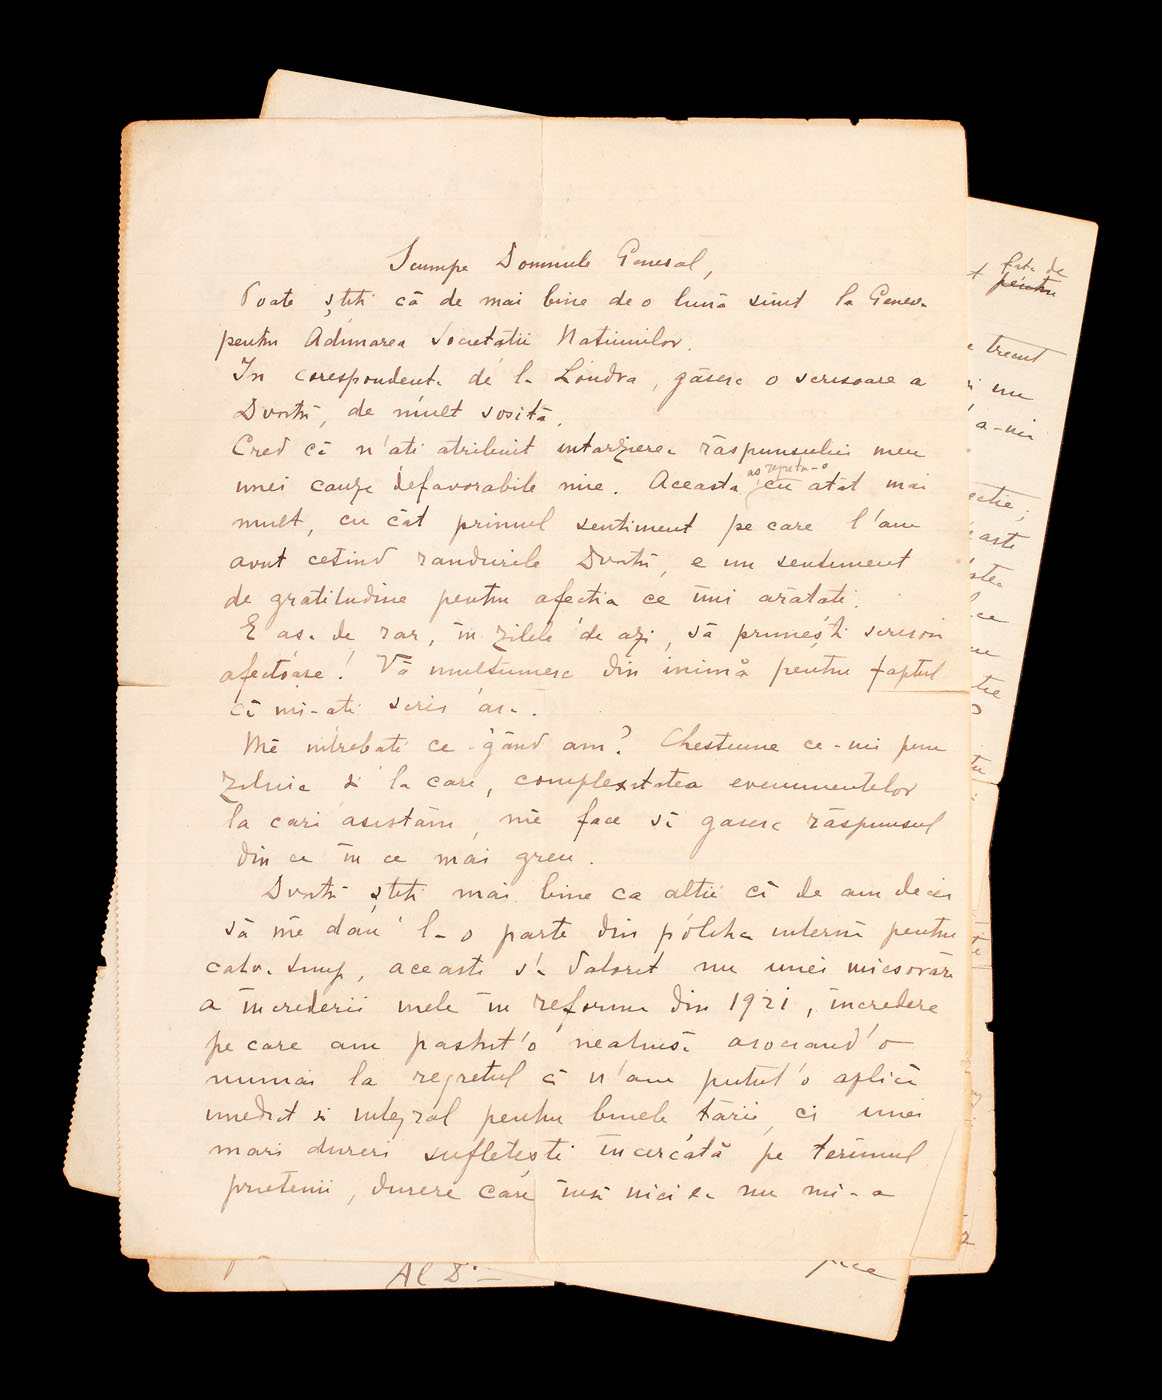 Scumpe Domnule General,
Poate știți că de mai bine de o lună sunt la Geneva
pentru Adunarea Societății Națiunilor.
In corespondența de la Londra, găsesc o scrisoare a
Dvostră, de mult sosită.
Cred că n'ați atribuit intarzierea răspunsului meu
unei cauze defavorabile mie. Aceasta cu atât mai
aș regreta-o
mult, cu cât primul sentiment pe care l'am
avut cetind randurile Dvstră, e un sentiment
de gratitudine pentru afecția ce îmi arătați.
E așa de rar, în zilele de azi, să primești scrisori
afectoase! Vă mulțumesc din inimă pentru faptul
că mi-ați scris așa.
Mě intrebați ce gând am? Chestiune ce-mi pun
zilnic și la care, complexitatea evenimentelor
la cari asistăm, mě face să găsesc răspunsul
din ce în ce mai greu.
Dvstră știți mai bine ca alții că de am decis
să mě dau la o parte din politica internă pentru
câtva timp, aceasta s'a datorit nu unei micșorări
a încrederii mele în reforma din 1921, încredere
pe care am pastrat'o neatinsă asociand'o
numai la regretul că n'am putut'o aplică
imediat și integral pentru binele țării, ci unei
mari dureri sufletești încercată pe terîmul
prieteniei, durere care însă nici ea nu mi-a
fața de
pentru
trecut
nu
a-mi
ce
Al D.